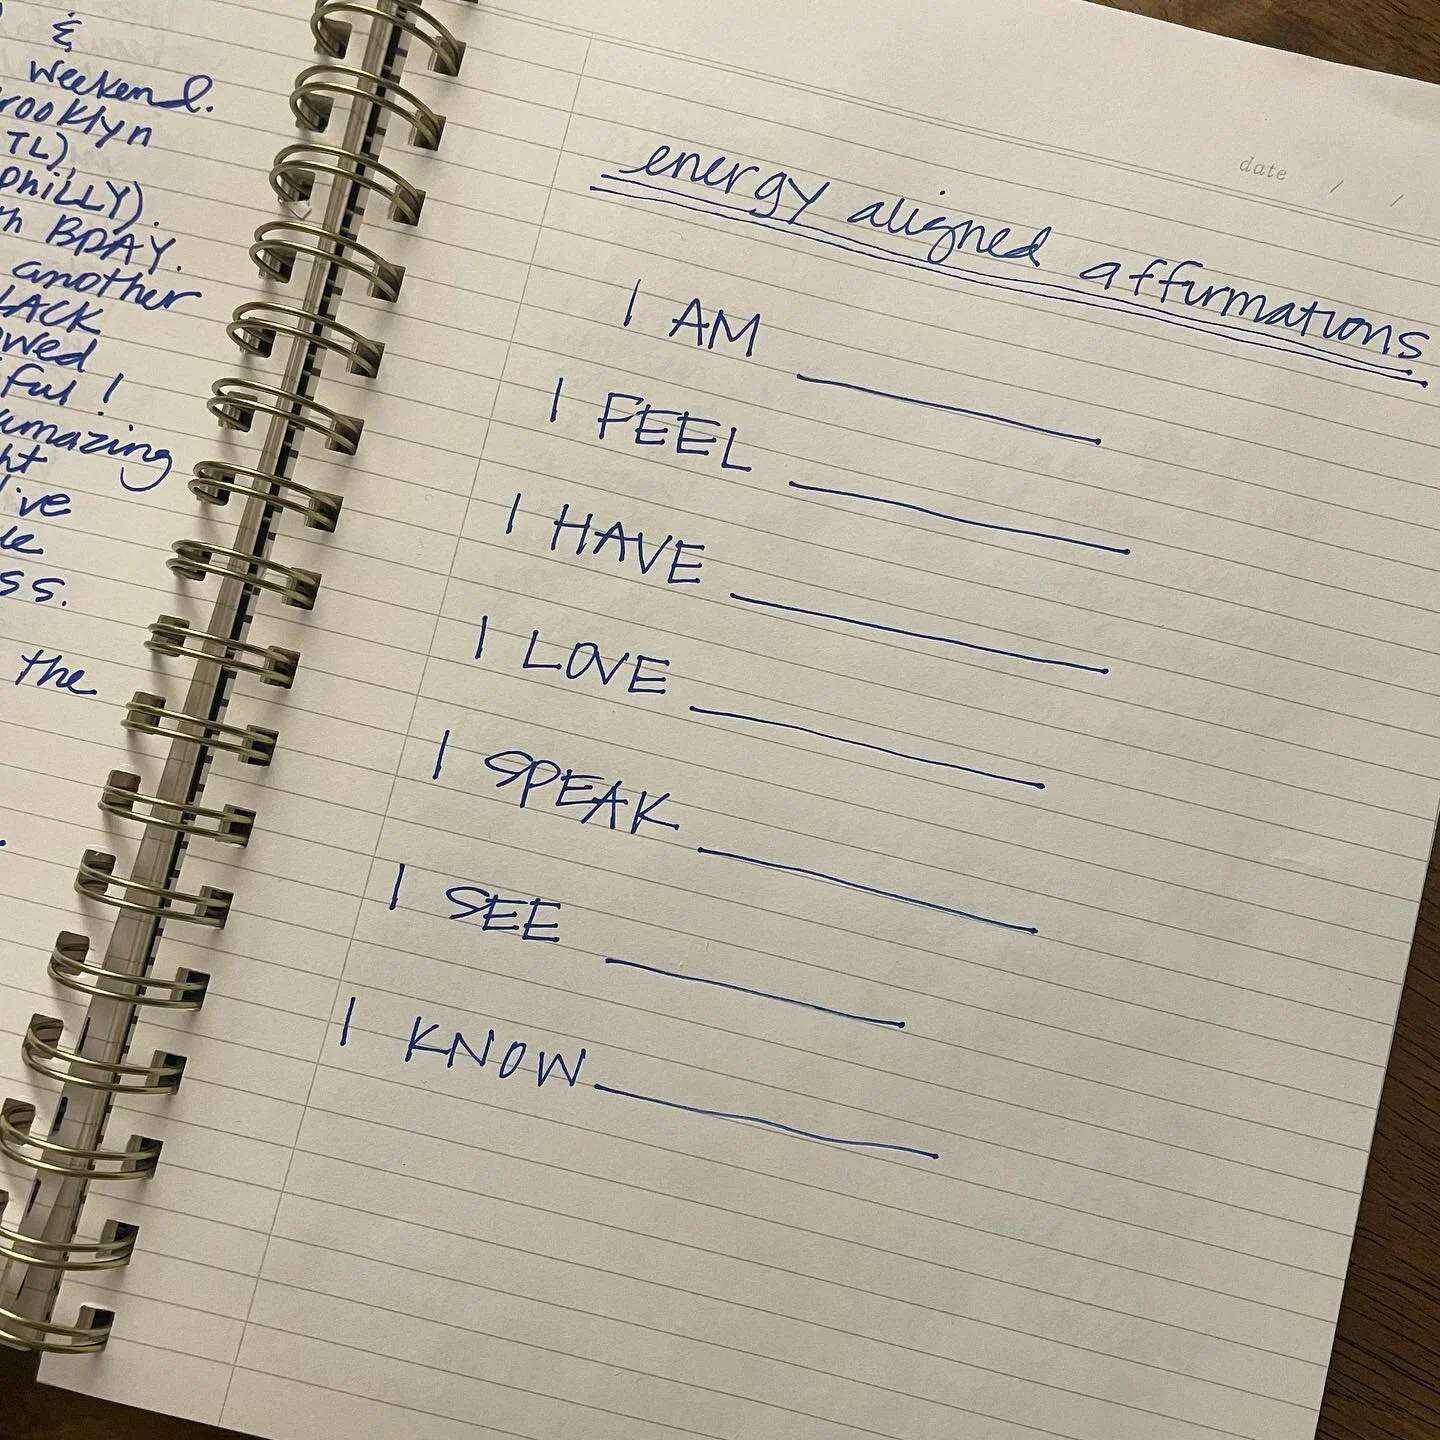 &
weekend.
rooklyn
TL)
PhiLLY).
h BDAY.
another
LACK
owed
ful!
amazing
ht
ive
le
ss.
the
date / /
energy aligned affirmations
I AM
I FEEL
I HAVE
I LOVE
I SPEAK
I SEE
I KNOW